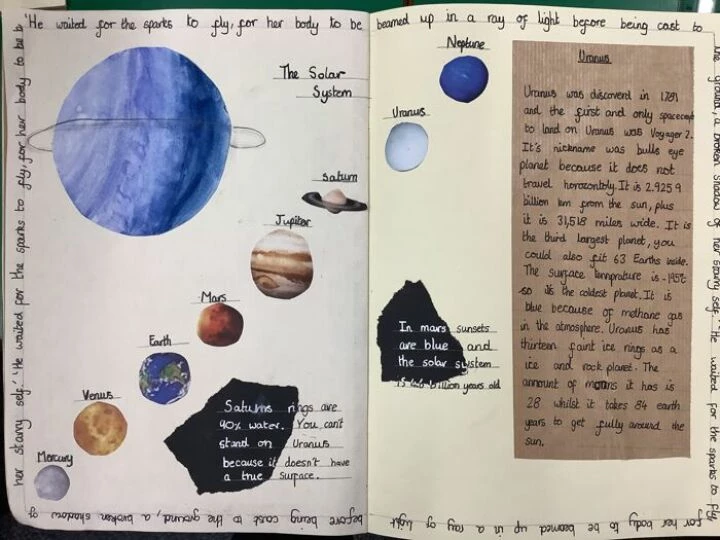 'He waited for the sparks to fly, for her body to be beamed up in a ray of light before being cast to
the ground, a broken shadow of her starry self.' He waited for the sparks to fly,
for her body to be beamed up in a ray of light
before being cast to the ground, a broken shadow of
her starry self.' 'He waited for the sparks to fly, for her body to be
The Solar
System
Saturn
Jupiter
Mars
Earth
Venus
Mercury
Saturns rings are
90% water. You can't
stand on Uranus
because it doesn't have
a true surface.
Neptune
Uranus
In mars sunsets
are blue and
the solar system
is billion years old
Uranus
Uranus was discoverd in 1781
and the first and only spacecraft
to land on Uranus was Voyager 2.
It's nickname was bulls eye
planet because it does not
travel horozontoly. It is 2.9259
billion km from the sun, plus
it is 31,518 miles wide. It is
the third largest planet, you
could also fit 63 Earths inside.
The surface temprature is -195°c
so is the coldest planet. It is
blue because of methane gas
in the atmosphere. Uranus has
thirteen faint ice rings as a
ice and rock planet. The
amount of moons it has is
28 whilst it takes 84 earth
years to get fully around the
sun.